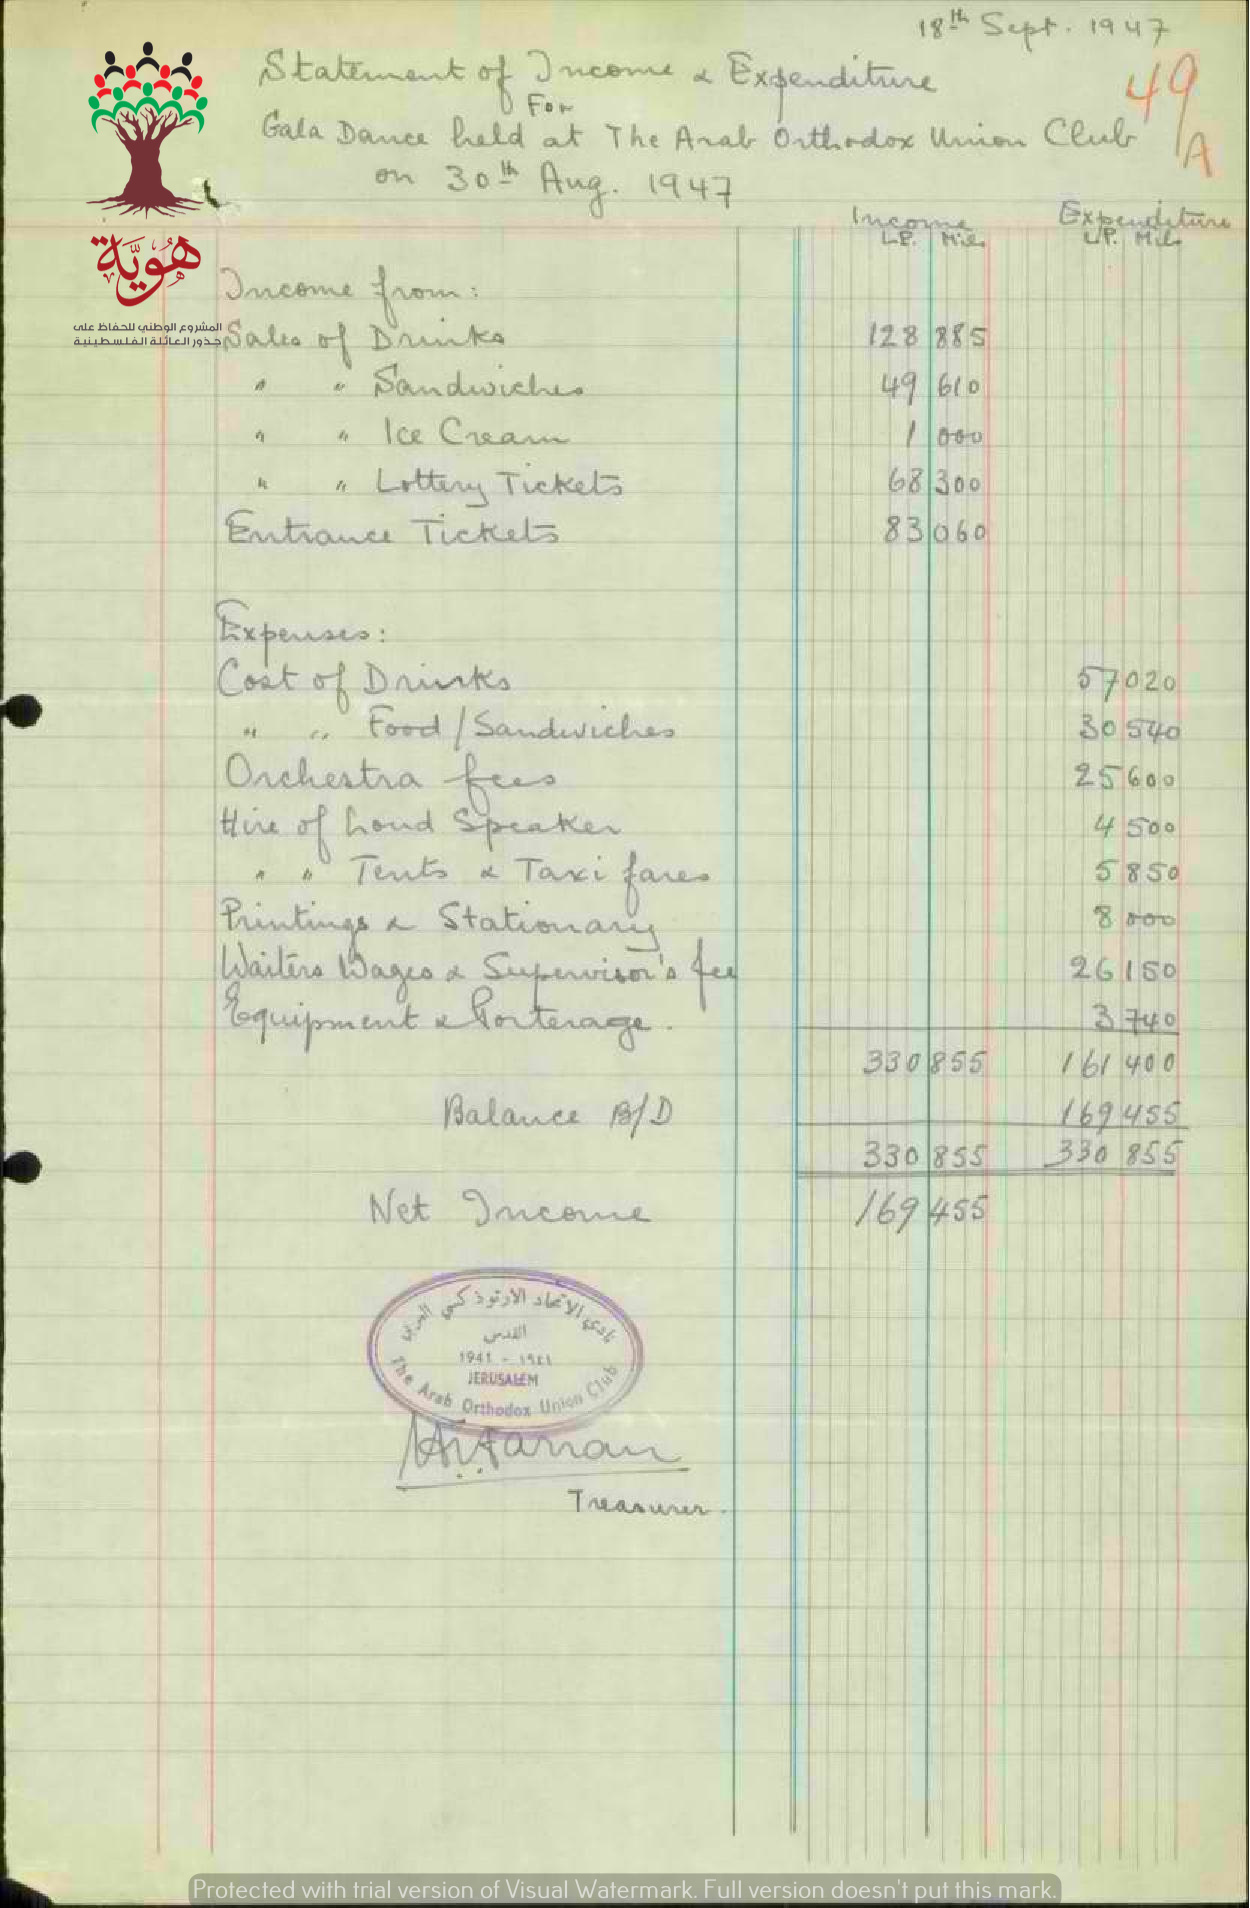 18th Sept. 1947
Statement of Income & Expenditure
For
Gala Dance held at The Arab Orthodox Union Club
on 30th Aug. 1947
49/A
هويّة
المشروع الوطني للحفاظ على
جذور العائلة الفلسطينية
Income Expenditure
L.P. Mils L.P. Mils
Income from:
Sales of Drinks 128 885
" " Sandwiches 49 610
" " Ice Cream 1 000
" " Lottery Tickets 68 300
Entrance Tickets 83 060
Expenses:
Cost of Drinks 57 020
" " Food / Sandwiches 30 540
Orchestra fees 25 600
Hire of Loud Speaker 4 500
" " Tents & Taxi fares 5 850
Printings & Stationary 8 000
Waiters Wages & Supervisor's fee 26 150
Equipment & Porterage. 3 740
330 855 161 400
Balance B/D 169 455
330 855 330 855
Net Income 169 455
نادي الاتحاد الارثوذكسي العربي
القدس
1941 - ١٩٤١
JERUSALEM
The Arab Orthodox Union Club
Treasurer.
Protected with trial version of Visual Watermark. Full version doesn't put this mark.